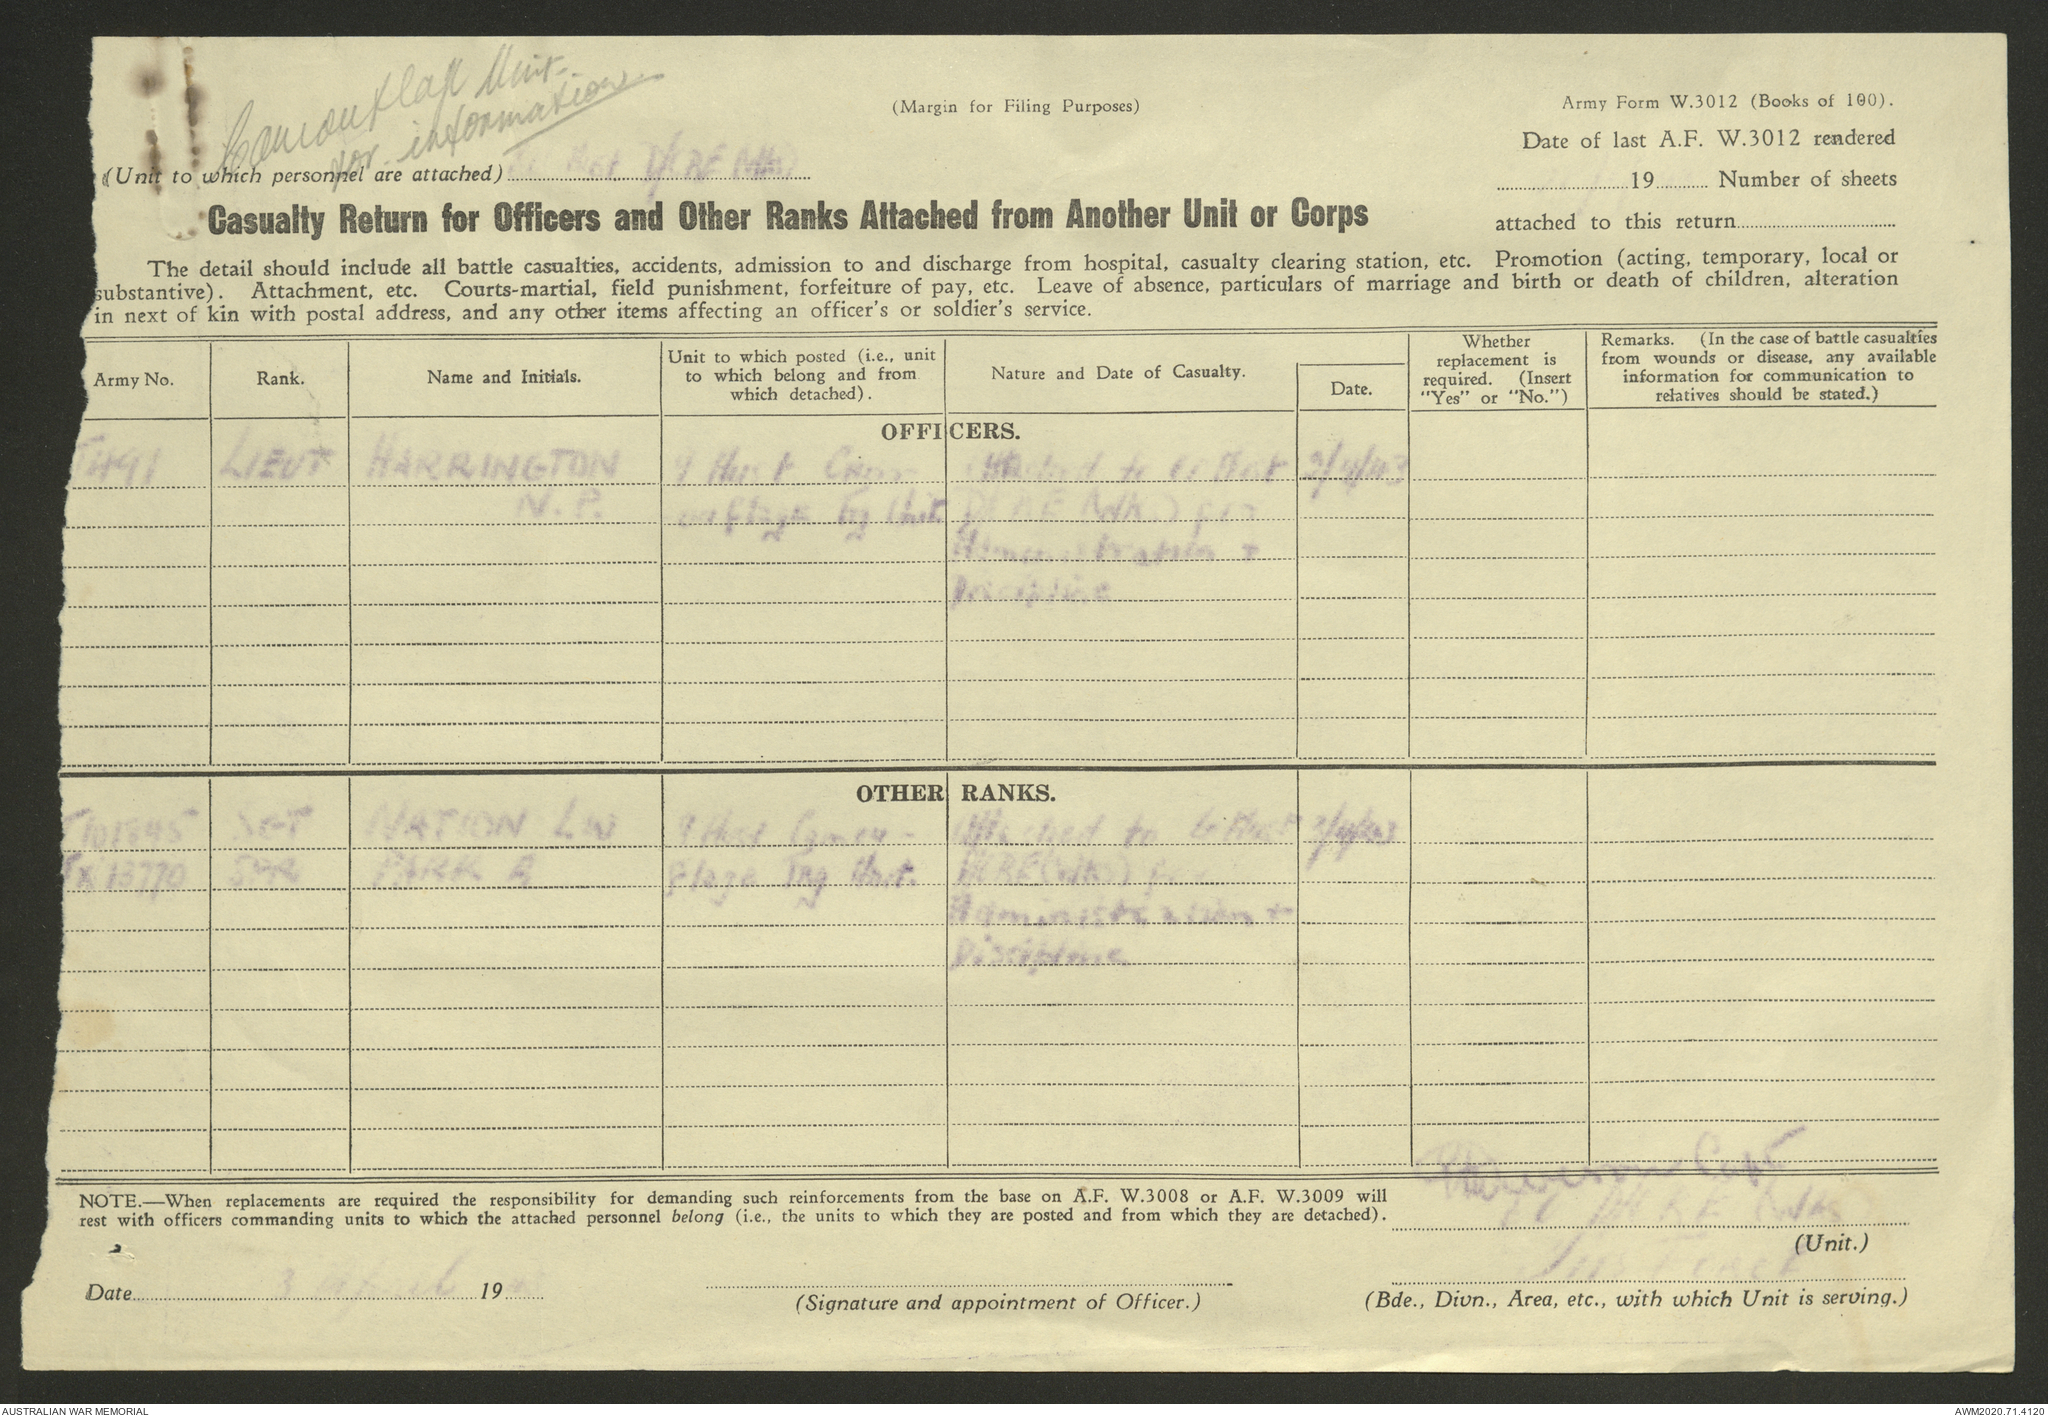 Camouflage Unit
for information
(Margin for Filing Purposes)
Army Form W.3012 (Books of 100).
Date of last A.F. W.3012 rendered
(Unit to which personnel are attached) DCRE
19 Number of sheets
Casualty Return for Officers and Other Ranks Attached from Another Unit or Corps
attached to this return
The detail should include all battle casualties, accidents, admission to and discharge from hospital, casualty clearing station, etc. Promotion (acting, temporary, local or
substantive). Attachment, etc. Courts-martial, field punishment, forfeiture of pay, etc. Leave of absence, particulars of marriage and birth or death of children, alteration
in next of kin with postal address, and any other items affecting an officer's or soldier's service.
Army No.
Rank.
Name and Initials.
Unit to which posted (i.e., unit
to which belong and from
which detached).
Nature and Date of Casualty.
Date.
Whether
replacement is
required. (Insert
"Yes" or "No.")
Remarks. (In the case of battle casualties
from wounds or disease, any available
information for communication to
relatives should be stated.)
OFFICERS.
T491 LIEUT HARRINGTON 9 Aust Cam- Attached to 3/4/43
N.P. ouflage Trg Unit DCRE for
Administration +
Discipline
OTHER RANKS.
T101845 SGT NATION LW 9 Aust Camou- Attached to 3/4/43
TX13770 SPR PARK A flage Trg Unit. DCRE for
Administration +
Discipline
NOTE.—When replacements are required the responsibility for demanding such reinforcements from the base on A.F. W.3008 or A.F. W.3009 will
rest with officers commanding units to which the attached personnel belong (i.e., the units to which they are posted and from which they are detached).
Capt
(Unit.)
Date 3 April 19
(Signature and appointment of Officer.)
(Bde., Divn., Area, etc., with which Unit is serving.)
AUSTRALIAN WAR MEMORIAL
AWM2020.71.4120